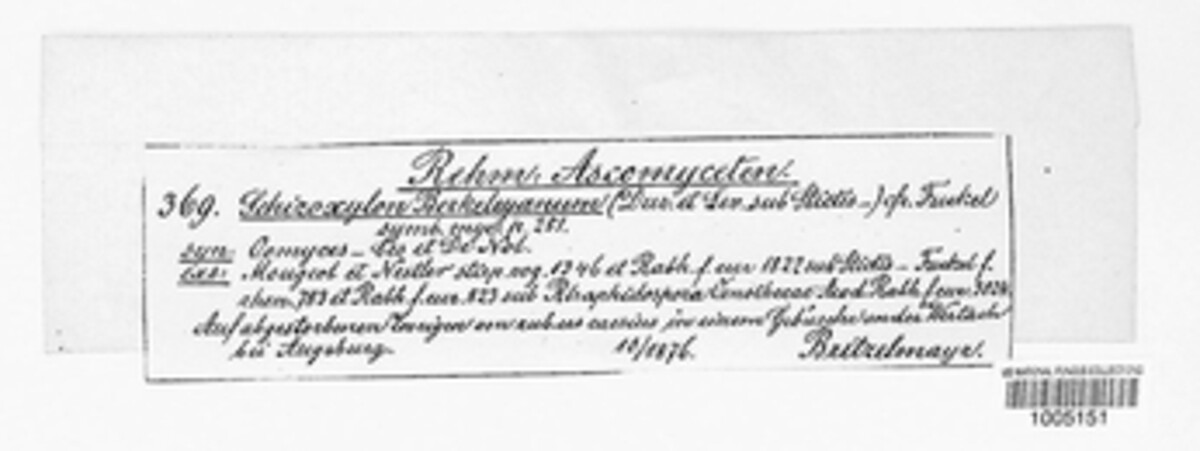 Rehm, Ascomyceten.
369. Schizoxylon Berkeleyanum (Dur. et Lev. sub Stictis –) cfr. Fuckel
symb. myc. p. 251.
syn. Oomyces – Ces et De Not.
exs: Mougeot et Nestler stirp. vog. 1346 et Rabh. f. eur 1822 sub Stictis – Fuckel f.
rhen. 783 et Rabh f. eur. 823 sub Rhaphidospora Rabh f. eur. 3024
Auf abgestorbenen Zweigen von rubus caesius in einem Gebüsche an der Wertach
bei Augsburg. 10/1876. Britzelmayr.
US NATIONAL FUNGUS COLLECTIONS
1005151